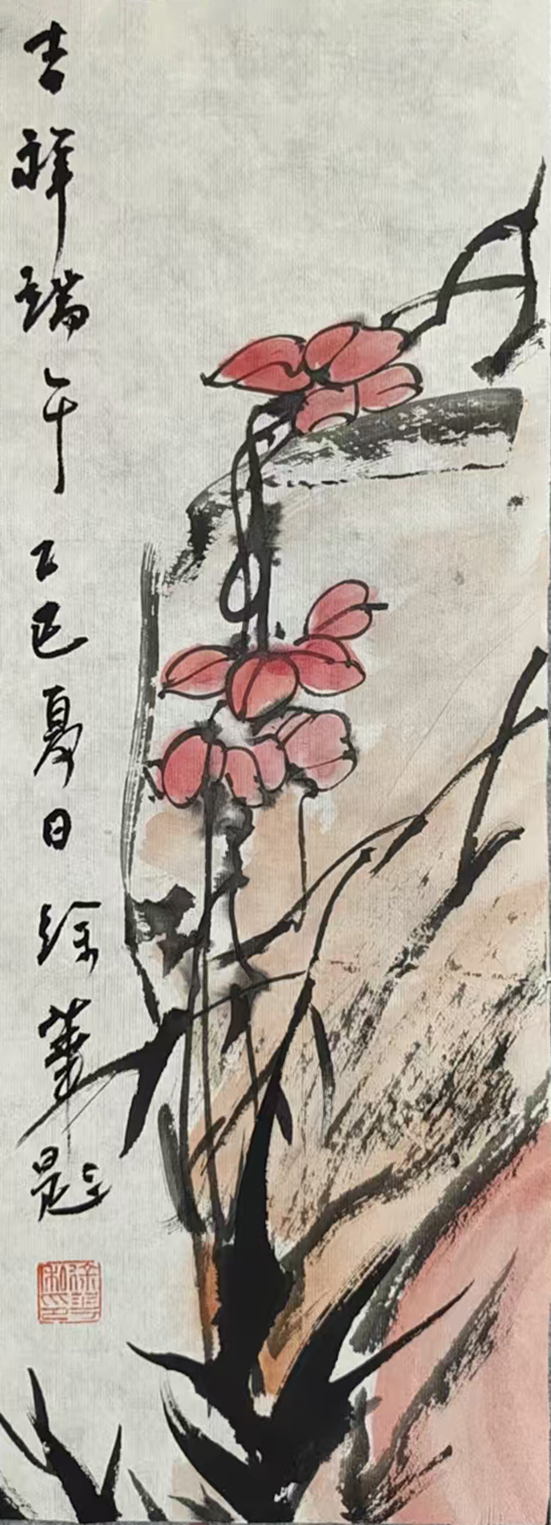 吉祥端午乙巳夏日徐华题